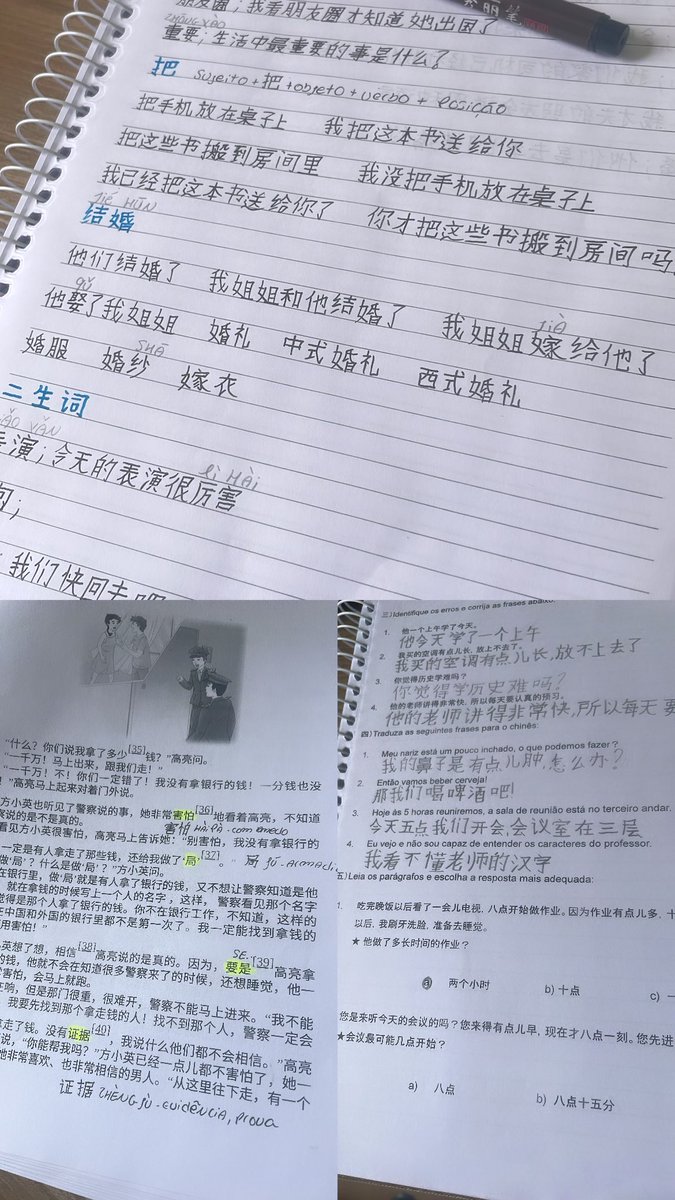 朋友圈；我看朋友圈才知道她出国了
重要；生活中最重要的事是什么？
把 sujeito + 把 + objeto + verbo + posição
把手机放在桌子上 我把这本书送给你
把这些书搬到房间里 我没把手机放在桌子上
我已经把这本书送给你了 你才把这些书搬到房间吗
jié HŪN
结婚
他们结婚了 我姐姐和他结婚了 我姐姐嫁给他了
他娶了我姐姐 婚礼 中式婚礼 西式婚礼
婚服 婚纱 嫁衣
二生词
表演；今天的表演很厉害
lì Hài
；我们快回去吧
“什么？你们说我拿了多少[35]钱？”高亮问。
“一千万！马上出来，跟我们走！”
“一千万！不！你们一定错了！我没有拿银行的钱！一分钱也没
！”高亮马上起来对着门外说。
方小英也听见了警察说的事，她非常害怕[36]地看着高亮，不知道
察说的是不是真的。
害怕 HÀi PÀ - com medo
看见方小英很害怕，高亮马上告诉她：“别害怕，我没有拿银行的
一定是有人拿了那些钱，还给我做了‘局’[37]。”
做‘局’？什么是做‘局’？”方小英问。
在银行里，做‘局’就是有人拿了银行的钱，又不想让警察知道是他
就在拿钱的时候写上一个人的名字，这样，警察看见那个名字
觉得是那个人拿了银行的钱。你不在银行工作，不知道，这样的
在中国和外国的银行里都不是第一次了。我一定能找到拿钱的
用害怕！”
英想了想，相信[38]高亮说的是真的。因为，要是[39]高亮拿
SE
的钱，他就不会在知道很多警察来了的时候，还想睡觉，他一
害怕，会马上就跑。
在响，但是那门很重，很难开，警察不能马上进来。“我不能
我要先找到那个拿走钱的人！找不到那个人，警察一定会
拿走了钱。没有证据[40]，我说什么他们都不会相信。”高亮
说，“你能帮我吗？”方小英已经一点儿都不害怕了，她一
她非常喜欢、也非常相信的男人。“从这里往下走，有一个
证据 ZHÈNG jÙ - evidência, prova
三) Identifique os erros e corrija as frases abaixo.
1. 他一个上午学了今天。
他今天学了一个上午
2. 我买的空调有点儿长，放上不去了。
我买的空调有点儿长，放不上去了
3. 你觉得历史学难吗？
你觉得学历史难吗？
4. 他的老师讲得非常快，所以每天要认真的预习。
他的老师讲得非常快，所以每天要
四) Traduza as seguintes frases para o chinês:
1. Meu nariz está um pouco inchado, o que podemos fazer?
我的鼻子是有点儿肿，怎么办？
2. Então vamos beber cerveja!
那我们喝啤酒吧！
3. Hoje às 5 horas reuniremos, a sala de reunião está no terceiro andar.
今天五点我们开会，会议室在三层
4. Eu vejo e não sou capaz de entender os caracteres do professor.
我看不懂老师的汉字
五) Leia os parágrafos e escolha a resposta mais adequada:
1. 吃完晚饭以后看了一会儿电视，八点开始做作业。因为作业有点儿多，十
以后，我刷牙洗脸，准备去睡觉。
★ 他做了多长时间的作业？
a) 两个小时 b) 十点 c) 一
您是来听今天的会议的吗？您来得有点儿早，现在才八点一刻。您先进
★会议最可能几点开始？
a) 八点 b) 八点十五分